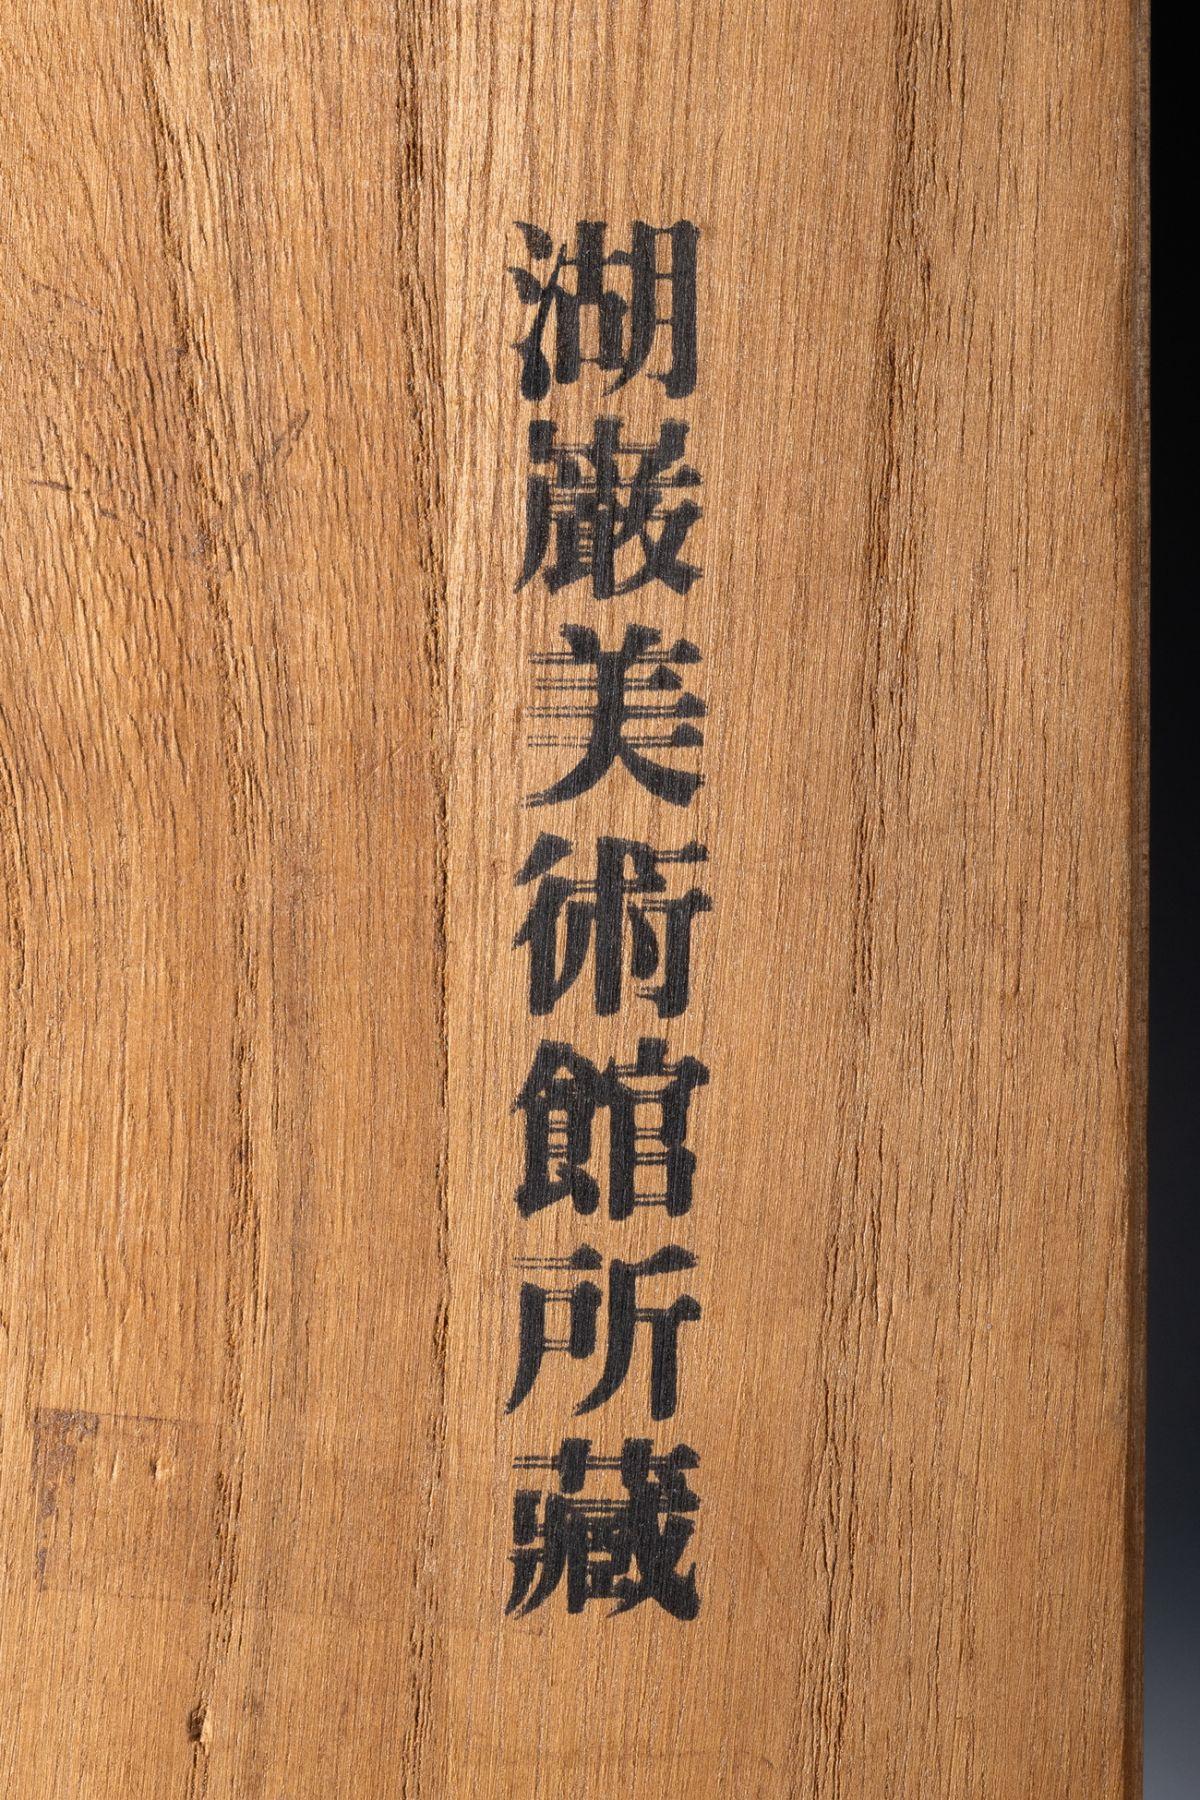 湖巌美術館所藏